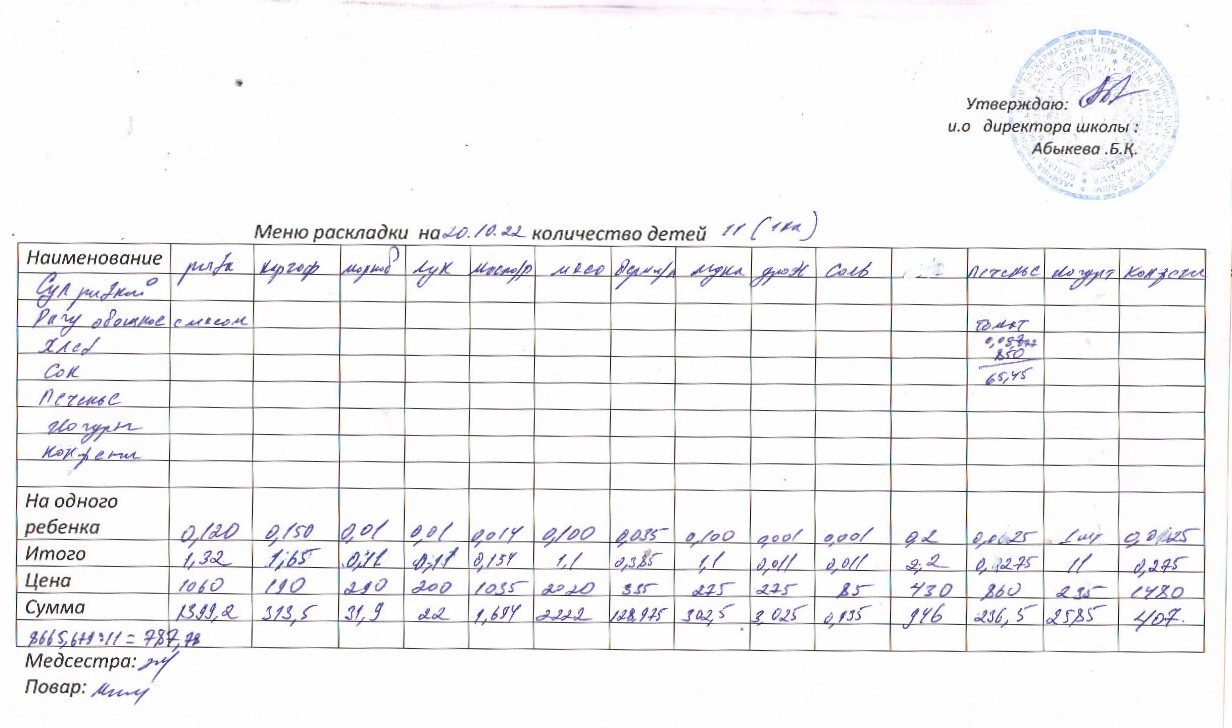 Утверждаю:
и.о директора школы :
Абыкева .Б.Қ.
Меню раскладки на 20.10.22 количество детей 11 (1кл)
Наименование рыба картоф морков лук масло/р мясо вермиш мука дрож соль печенье йогурт конфеты
Суп рыбный
Рагу овощное с мясом томат
Хлеб 0,077
850
Сок 65,45
Печенье
Йогурт
Конфеты
На одного
ребенка 0,120 0,150 0,01 0,01 0,014 0,100 0,035 0,100 0,001 0,001 0,2 0,025 1шт 0,025
Итого 1,32 1,65 0,11 0,11 0,154 1,1 0,385 1,1 0,011 0,011 2,2 0,275 11 0,275
Цена 1060 190 290 200 1035 2020 335 275 275 85 430 860 235 1480
Сумма 1399,2 313,5 31,9 22 1,694 2222 128,975 302,5 3,025 0,935 946 236,5 2585 407.
8665,679:11 = 787,78
Медсестра:
Повар: